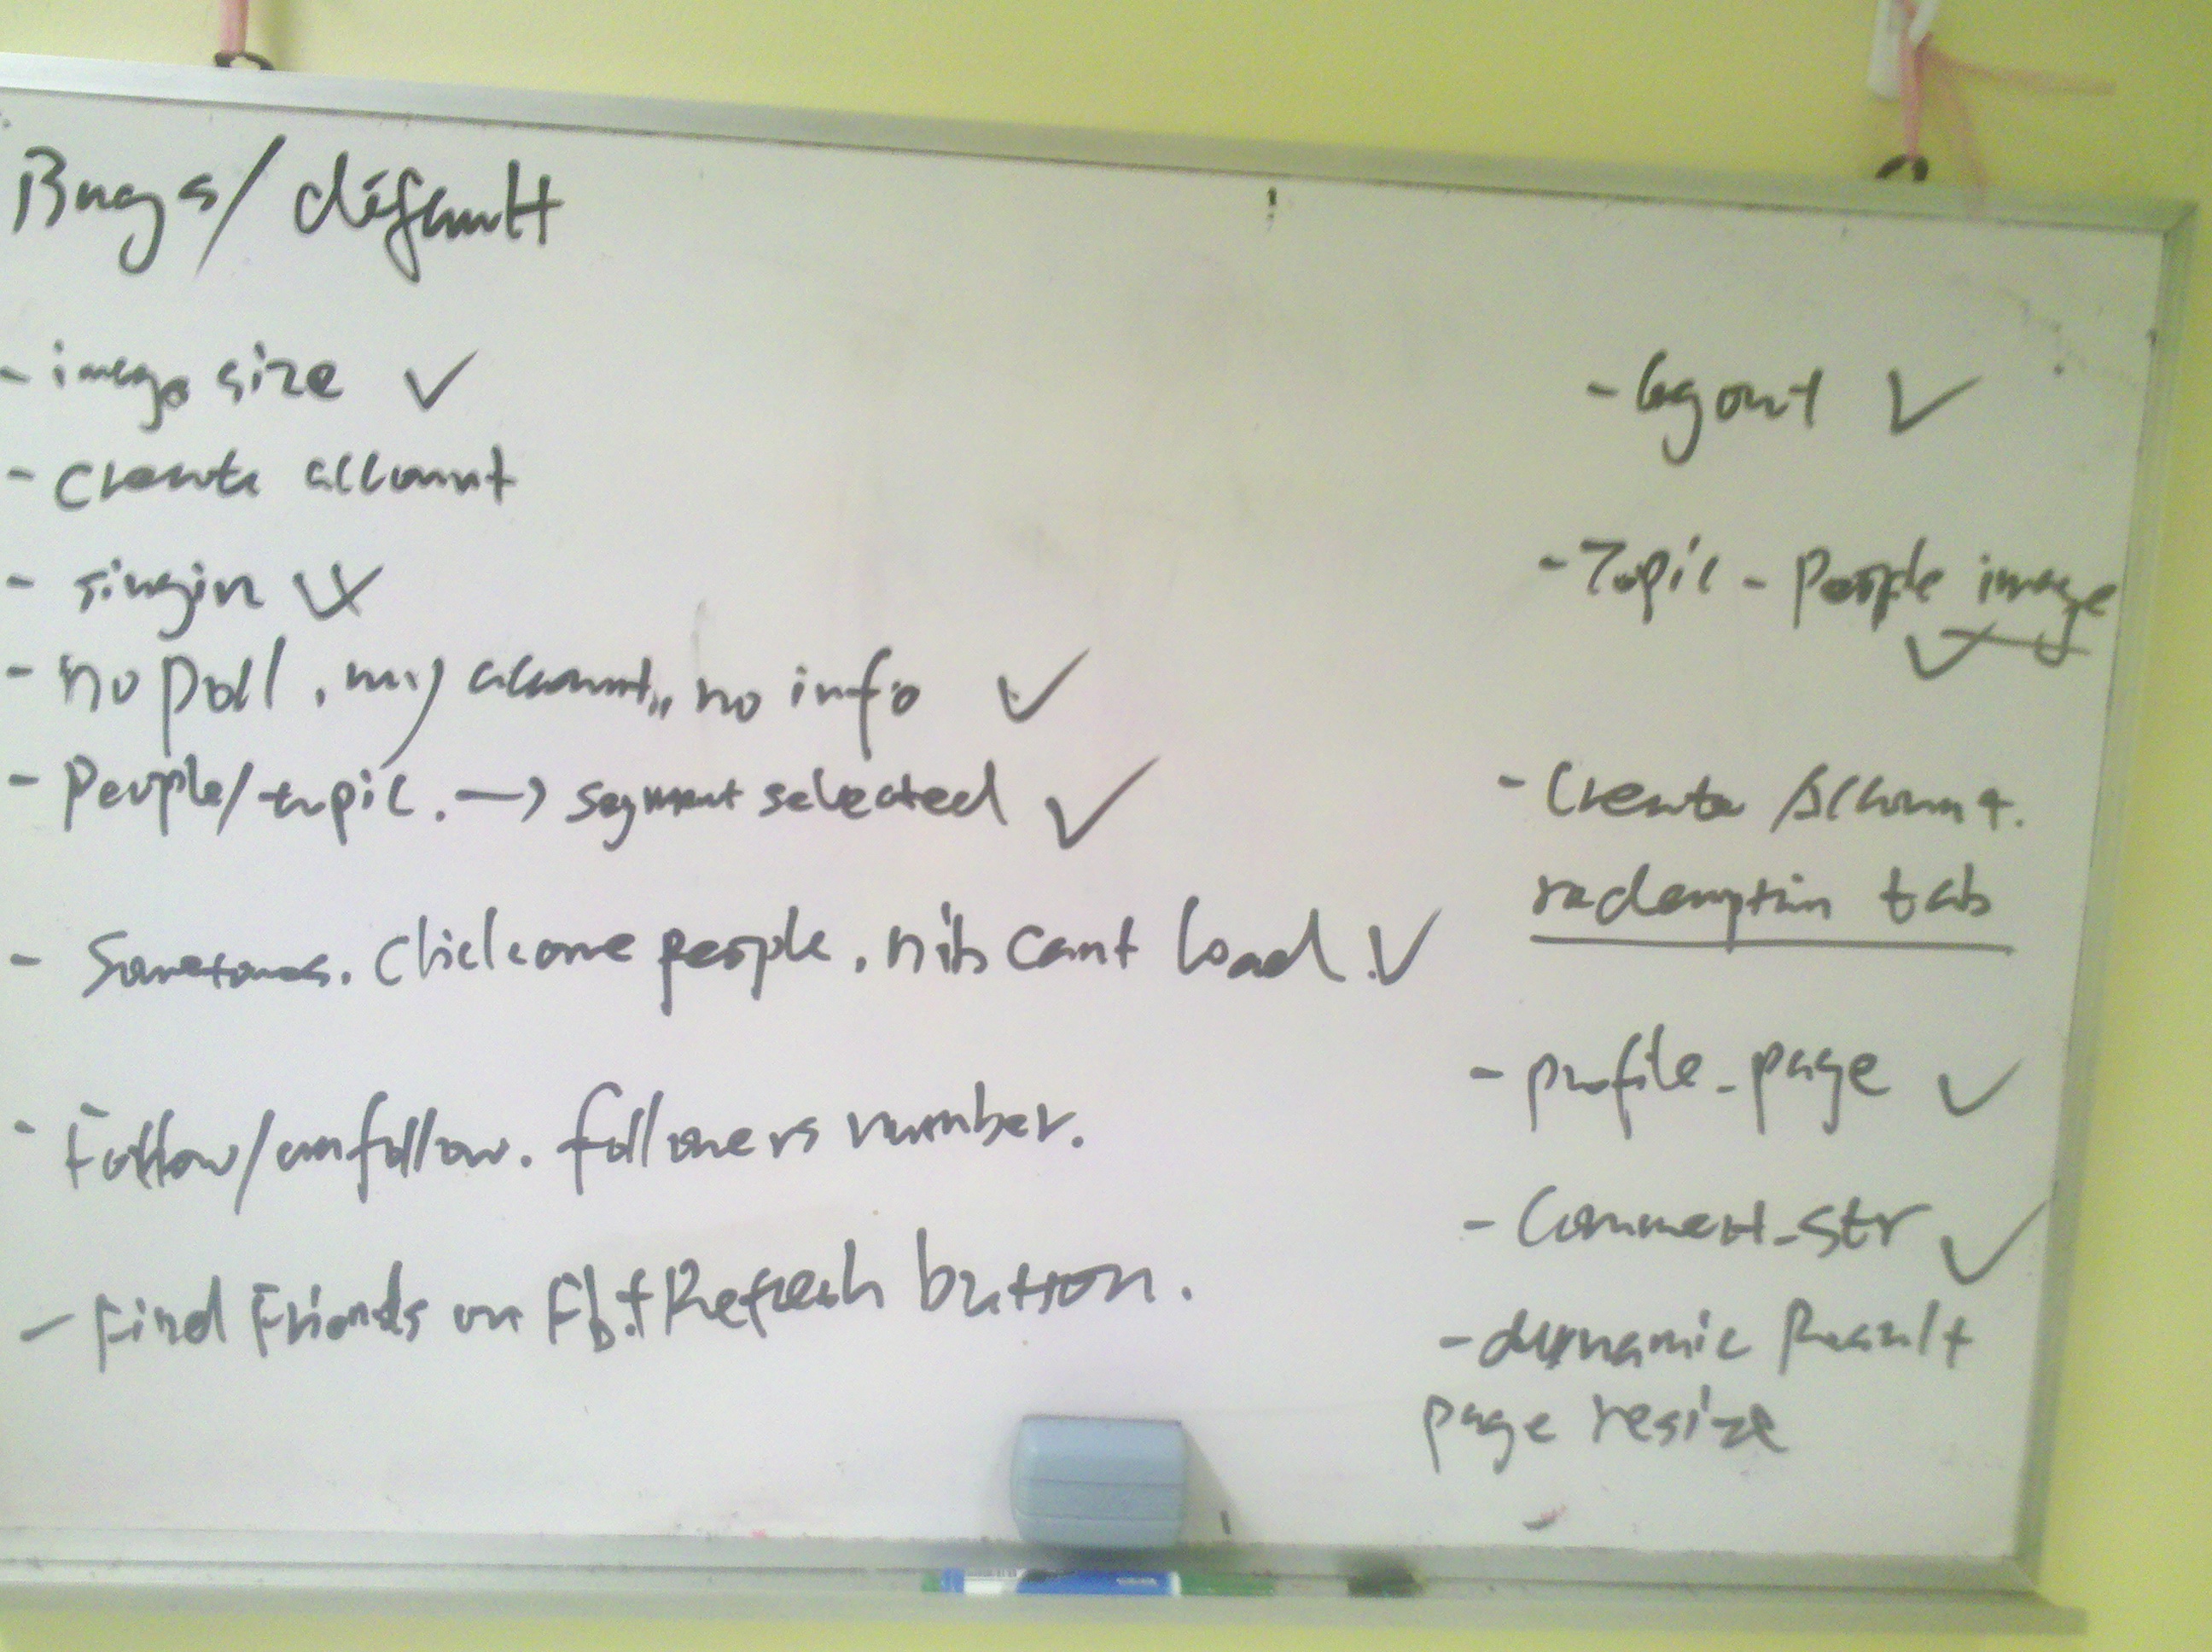 Bugs/default
- image size ✓
- create account
- singin
- no poll, my account,, no info ✓
- People/topic. → segment selected ✓
- Sometimes. Click one people, nib cant load. ✓
- Follow/unfollow. followers number.
- Find Friends on Fb. + Refresh button.
- logout ✓
- Topic - People image ✓
- Create Account.
redemption tab
- profile-page ✓
- Comment-str ✓
- dynamic Result
page resize